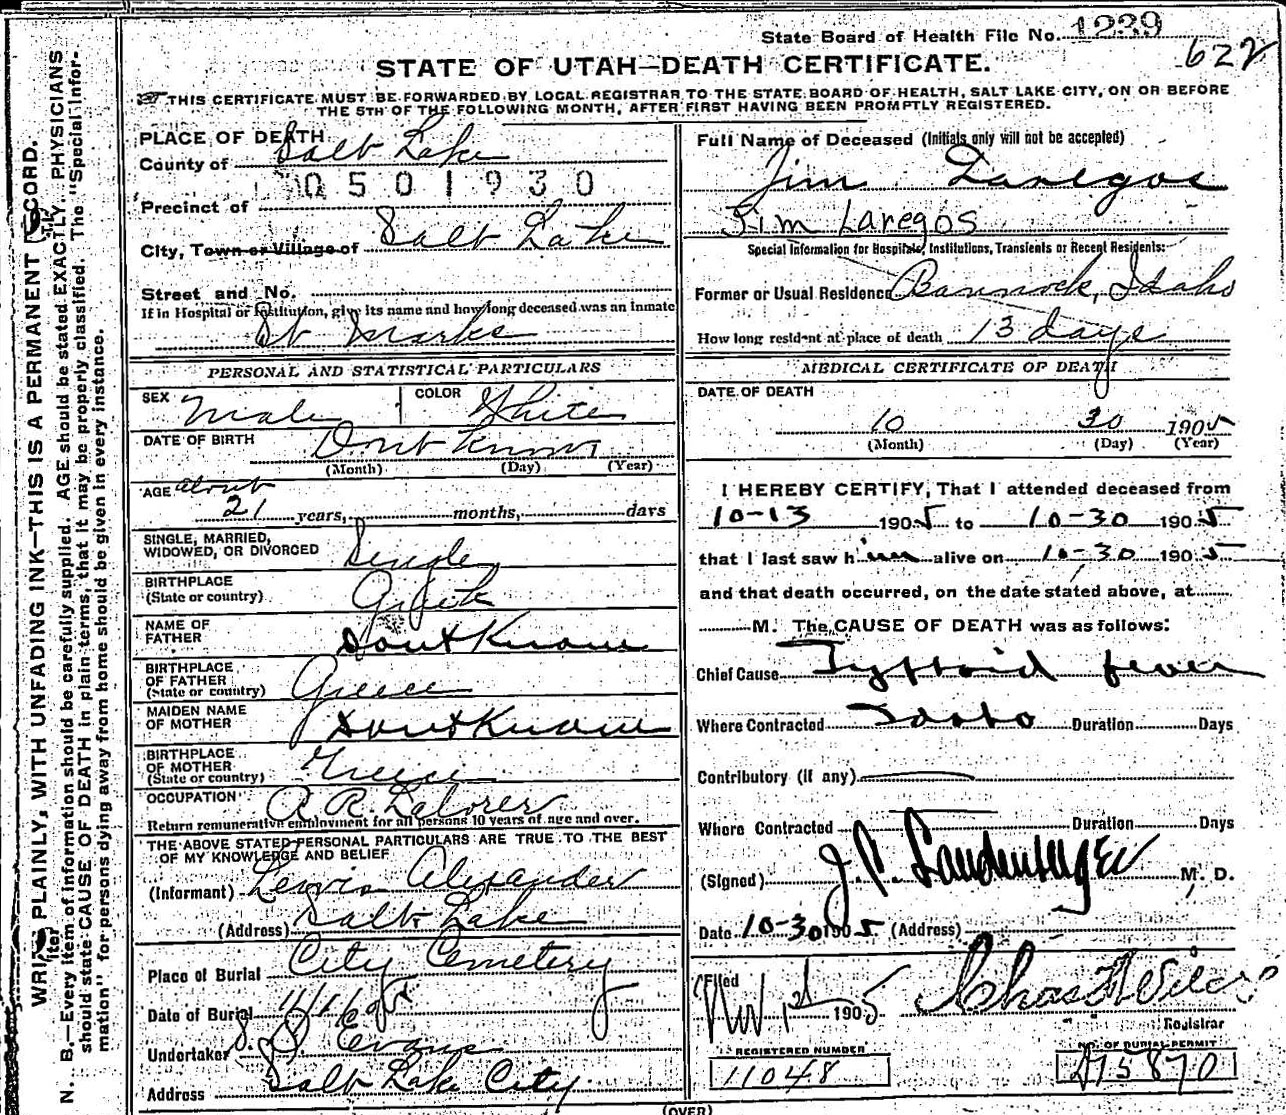 State Board of Health File No. 1239
622
STATE OF UTAH—DEATH CERTIFICATE.
THIS CERTIFICATE MUST BE FORWARDED BY LOCAL REGISTRAR TO THE STATE BOARD OF HEALTH, SALT LAKE CITY, ON OR BEFORE
THE 5TH OF THE FOLLOWING MONTH, AFTER FIRST HAVING BEEN PROMPTLY REGISTERED.
WRITE PLAINLY, WITH UNFADING INK—THIS IS A PERMANENT RECORD.
N. B.—Every item of information should be carefully supplied. AGE should be stated EXACTLY. PHYSICIANS
should state CAUSE OF DEATH in plain terms, that it may be properly classified. The "Special Infor-
mation" for persons dying away from home should be given in every instance.
PLACE OF DEATH
County of Salt Lake
0501930
Precinct of
City, Town or Village of Salt Lake
Street and No.
If in Hospital or Institution, give its name and how long deceased was an inmate
St Marks
PERSONAL AND STATISTICAL PARTICULARS
SEX Male COLOR White
DATE OF BIRTH Dont Know
(Month) (Day) (Year)
AGE about
21 years, months, days
SINGLE, MARRIED,
WIDOWED, OR DIVORCED Single
BIRTHPLACE
(State or country) Greek
NAME OF
FATHER Dont Know
BIRTHPLACE
OF FATHER
(State or country) Greece
MAIDEN NAME
OF MOTHER Dont Know
BIRTHPLACE
OF MOTHER
(State or country) Greece
OCCUPATION R.R. Laborer
Return remunerative employment for all persons 10 years of age and over.
THE ABOVE STATED PERSONAL PARTICULARS ARE TRUE TO THE BEST
OF MY KNOWLEDGE AND BELIEF
(Informant) Lewis Alexander
(Address) Salt Lake
Place of Burial City Cemetery
Date of Burial 11/1/05
Undertaker S. D. Evans
Address Salt Lake City
Full Name of Deceased (Initials only will not be accepted)
Jim Laregos
Jim Laregos
Special Information for Hospitals, Institutions, Transients or Recent Residents:
Former or Usual Residence Bannock, Idaho
How long resident at place of death 13 days
MEDICAL CERTIFICATE OF DEATH
DATE OF DEATH
10 30 1905
(Month) (Day) (Year)
I HEREBY CERTIFY, That I attended deceased from
10-13 1905 to 10-30 1905
that I last saw him alive on 10-30 1905
and that death occurred, on the date stated above, at
M. The CAUSE OF DEATH was as follows:
Chief Cause Typhoid fever
Where Contracted Idaho Duration Days
Contributory (if any)
Where Contracted Duration Days
(Signed) J. C. Landenberger M. D.
Date 10-30 1905 (Address)
Filed
Nov 1st 1905
Registrar
REGISTERED NUMBER
11048
NO. OF BURIAL PERMIT
A15870
(OVER)